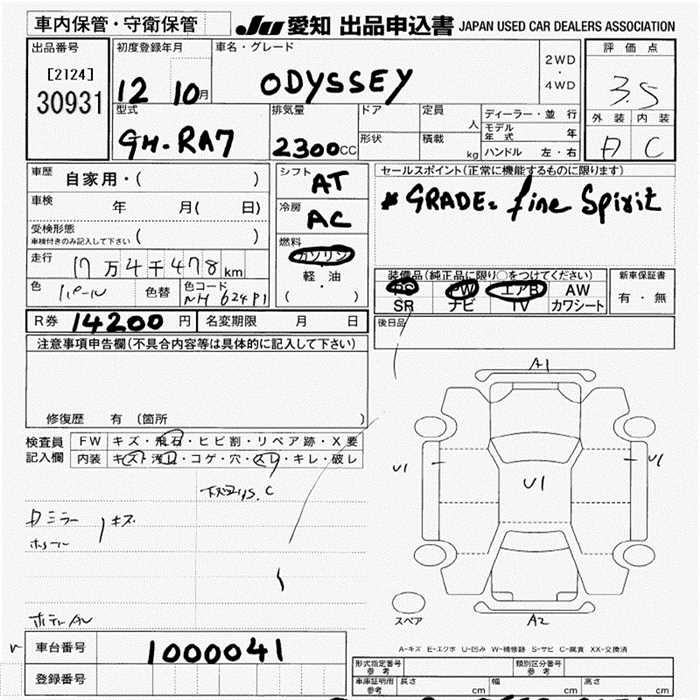 車内保管・守衛保管
JU 愛知 出品申込書 JAPAN USED CAR DEALERS ASSOCIATION
出品番号
[2124]
30931
初度登録年月
12 10月
車名・グレード
ODYSSEY
2WD
・
4WD
評価点
3.5
外装 内装
A C
型式
GH-RA7
排気量
2300CC
ドア
形状
定員
人
積載
kg
ディーラー・並行
モデル年式 年
ハンドル 左・右
車歴 自家用・( )
車検 年 月( 日)
受検形態
車検付きのみ記入して下さい ( )
走行 17万4千478km
色 パール 色替 色コード NH624P1
シフト AT
冷房 AC
燃料
ガソリン
軽・油
( )
セールスポイント(正常に機能するものに限ります)
* GRADE= fine Spirit
装備品(純正品に限り○をつけてください)
PS PW エアB AW
SR ナビ TV カワシート
新車保証書
有・無
R券 14200円 名変期限 月 日
後日品
注意事項申告欄(不具合内容等は具体的に記入して下さい)
修復歴 有 (箇所 )
検査員
記入欄
FW キズ・飛石・ヒビ割・リペア跡・X要
内装 キズ・汚レ・コゲ・穴・スレ・キレ・破レ
キズ
A1
U1
U1
U1
A2
スペア
A-キズ E-エクボ U-凹み W-補修跡 S-サビ C-腐食 XX-交換済
車台番号 1000041
登録番号
形式指定番号
参考
類別区分番号
参考
車庫証明用
参考
長さ cm 幅 cm 高さ cm